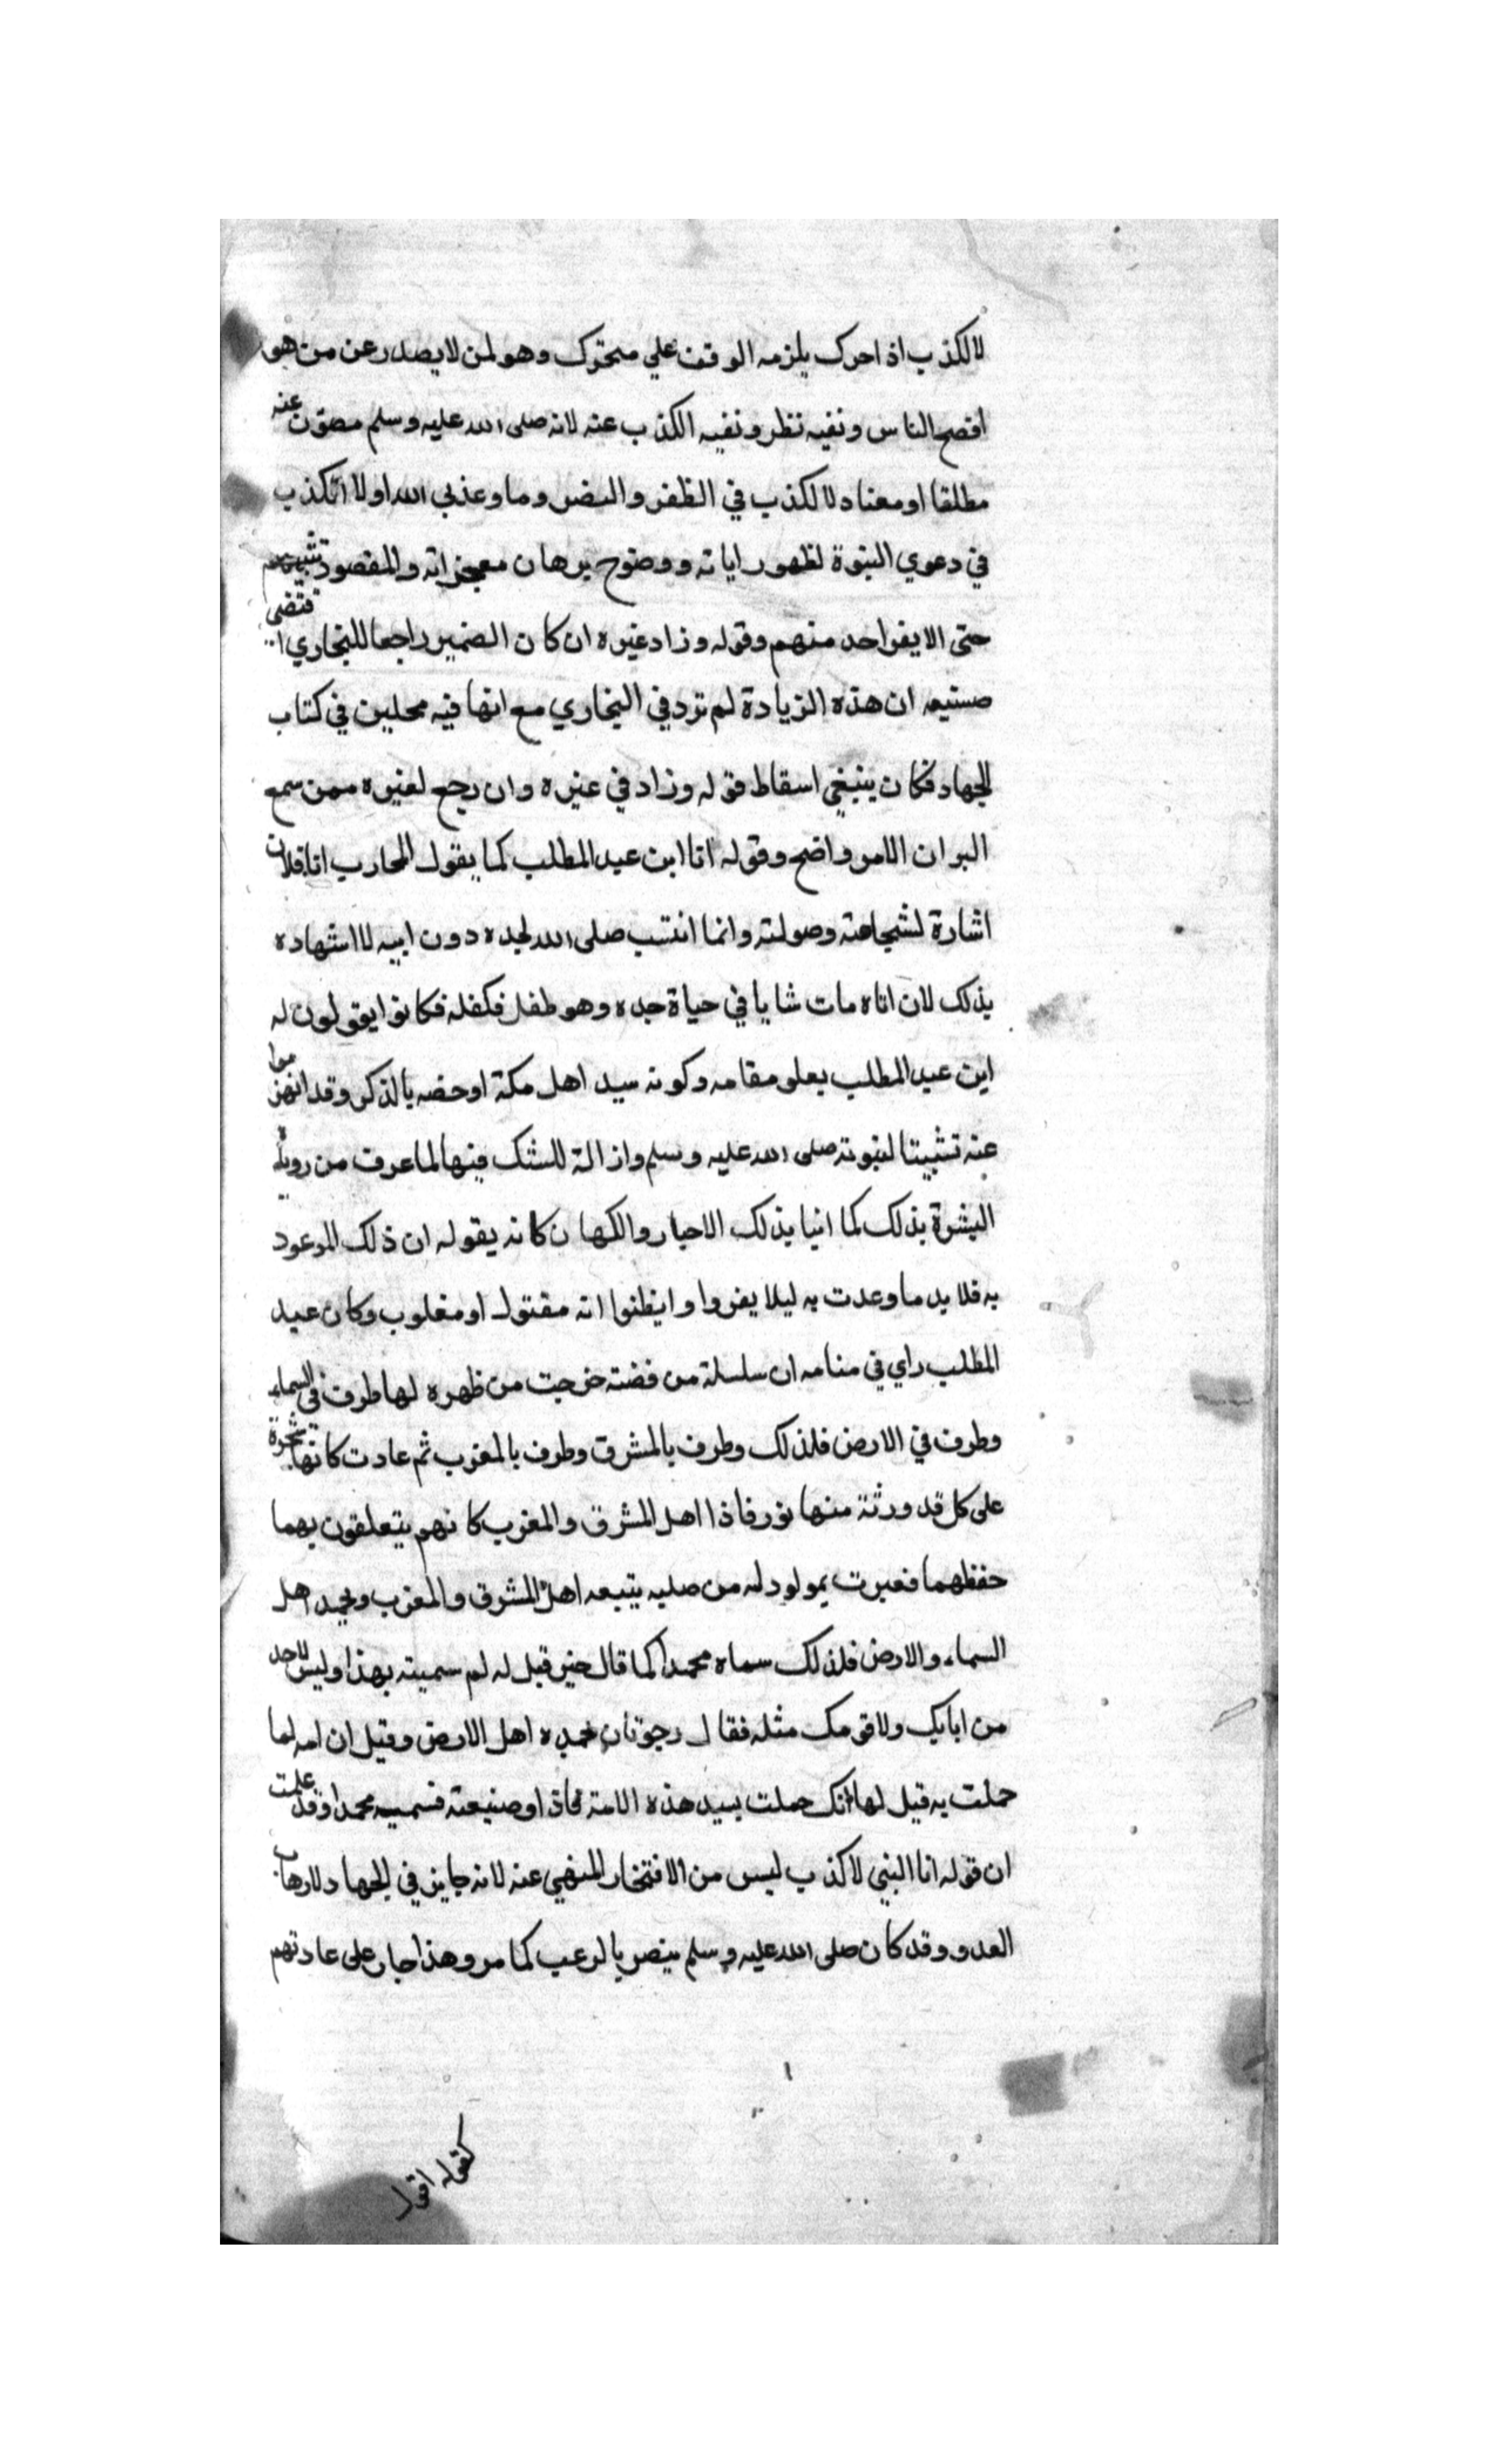 لا لكذب اذ احرك يلزمه الوقف علي متحرك وهو لمن لا يصدر عن من هو
افصح الناس ونفيه نظر ونفيه الكذب عنه لانه صلى الله عليه وسلم مصون عنه
مطلقا او معناه لا لكذب في الظفر والنصر وما وعدني الله اولا اتكذب
في دعوي النبوة لظهور اياته ووضوح برهان معجزاته والمقصود تثبيتهم
حتى لا يفر احد منهم وقوله وزاد غيره ان كان الضمير راجعا للبخاري اقتضى
صنيعه ان هذه الزيادة لم ترد في البخاري مع انها فيه محلين في كتاب
الجهاد فكان ينبغي اسقاط قوله وزاد في غيره وان رجع لغيره ممن سمع
البر ان الامر واضح وقوله انا ابن عبد المطلب كما يقول المحارب انا فلان
اشارة لشجاعته وصولته وانما انتسب صلى الله لجده دون ابيه لا اشهاده
بذلك لان اتاه مات شابا في حياة جده وهو طفل فكفله فكانوا يقولون له
ابن عبد المطلب بعلو مقامه وكونه سيد اهل مكة او خصه بالذكر وقد انهزموا
عنه تثبيتا لنبوته صلى الله عليه وسلم وازالة للشك فيها لما عرف من روياه
البشرة بذلك كما انبا بذلك الاحبار والكهان كانه يقوله ان ذلك الموعود
به فلا بد ما وعدت به ليلا يفروا وايظنوا انه مقتول او مغلوب وكان عبد
المطلب راي في منامه ان سلسلة من فضته خرجت من ظهره لها طرف في السماء
وطرف في الارض فلذلك وطرف بالمشرق وطرف بالمغرب ثم عادت كانها شجرة
على كل قد ورثة منها نور فاذا اهل المشرق والمغرب كانهم يتعلقون بهما
حفظهما فعبرت بمولود له من صلبه يتبعه اهل المشرق والمغرب ويحمد اهل
السماء والارض فلذلك سماه محمدا كما قال حين قيل له لم سميته بهذا وليس لاحد
من ابايك ولا قومك مثله فقال رجوت ان تحمده اهل الارض وقيل ان امه لما
حملت به قيل لها انك حملت بسيد هذه الامة فاذا وضيعته فسميه محمدا وقد علمت
ان قوله انا النبي لا كذب ليس من الافتخار المنهي عنه لانه جايز في الجهاد لارهاب
العدو وقد كان صلى الله عليه وسلم ينصر بالرعب كما مر وهذا جار على عادتهم
كقوله اقول